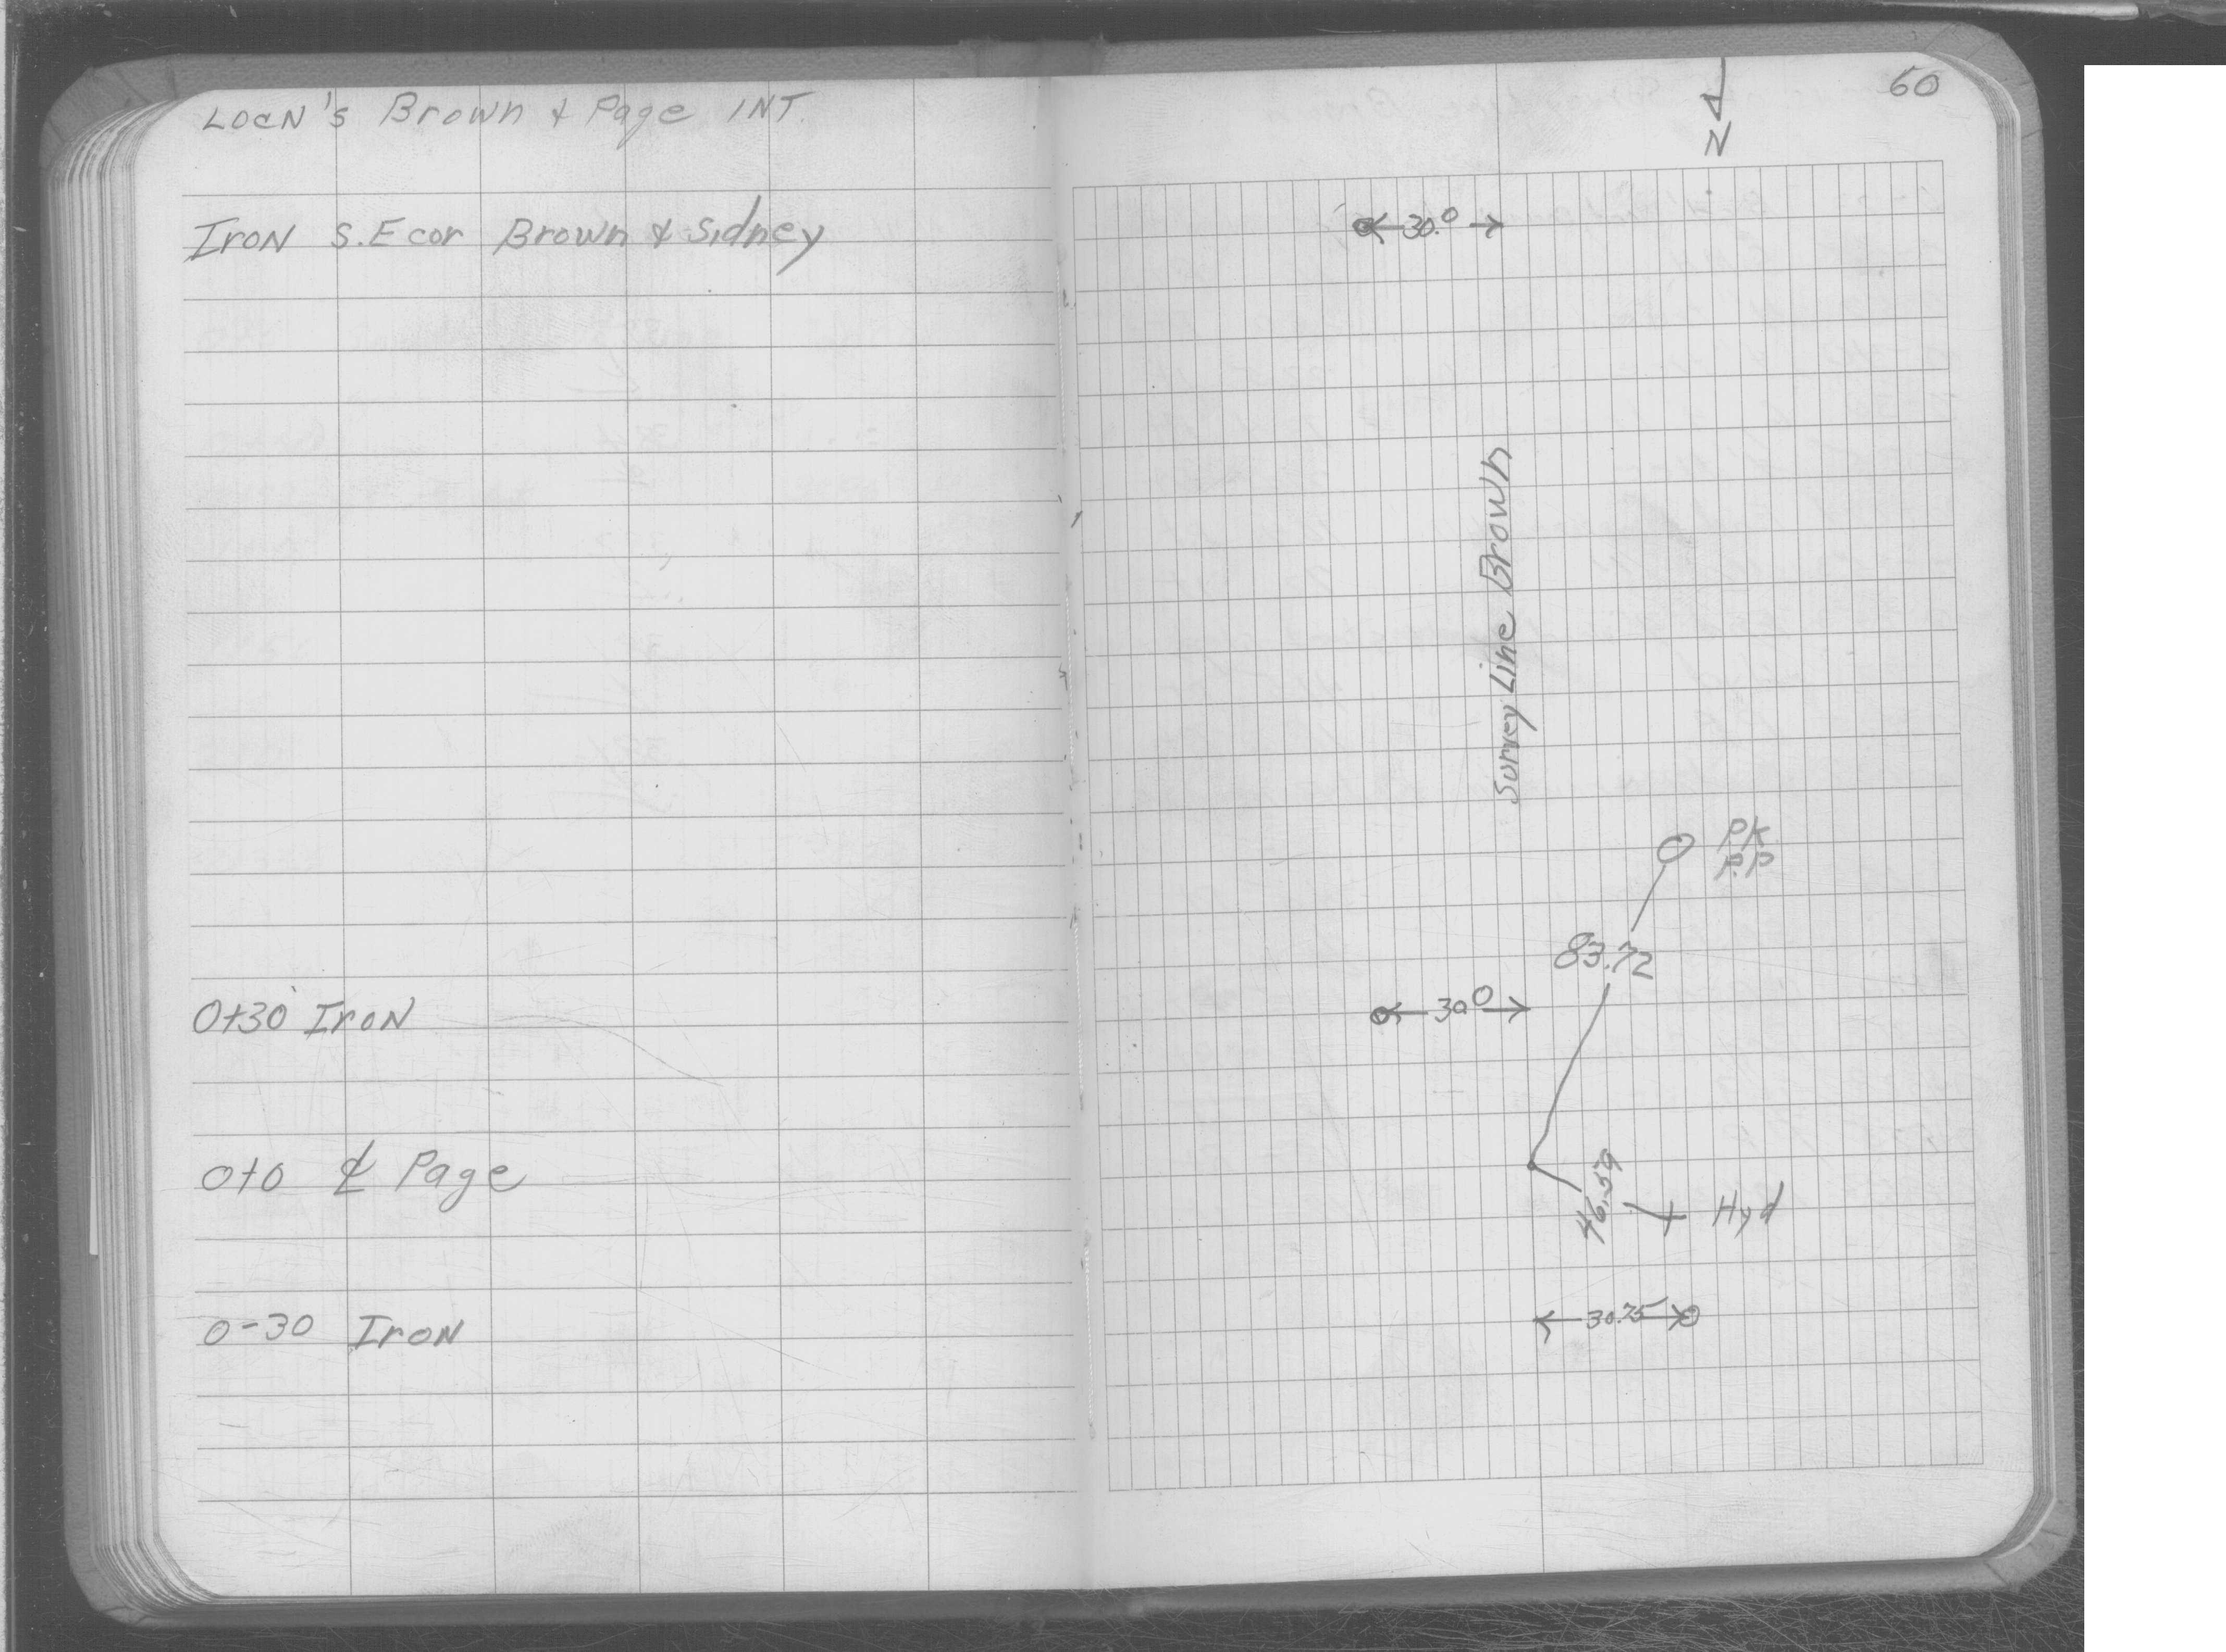 LOCN's Brown & Page INT.
Iron S.E cor Brown & Sidney
0+30 Iron
0+0 ℄ Page
0-30 Iron
60
N
30.0
Survey Line Brown
PK
P.P
83.72
30.0
46.59
Hyd
30.75